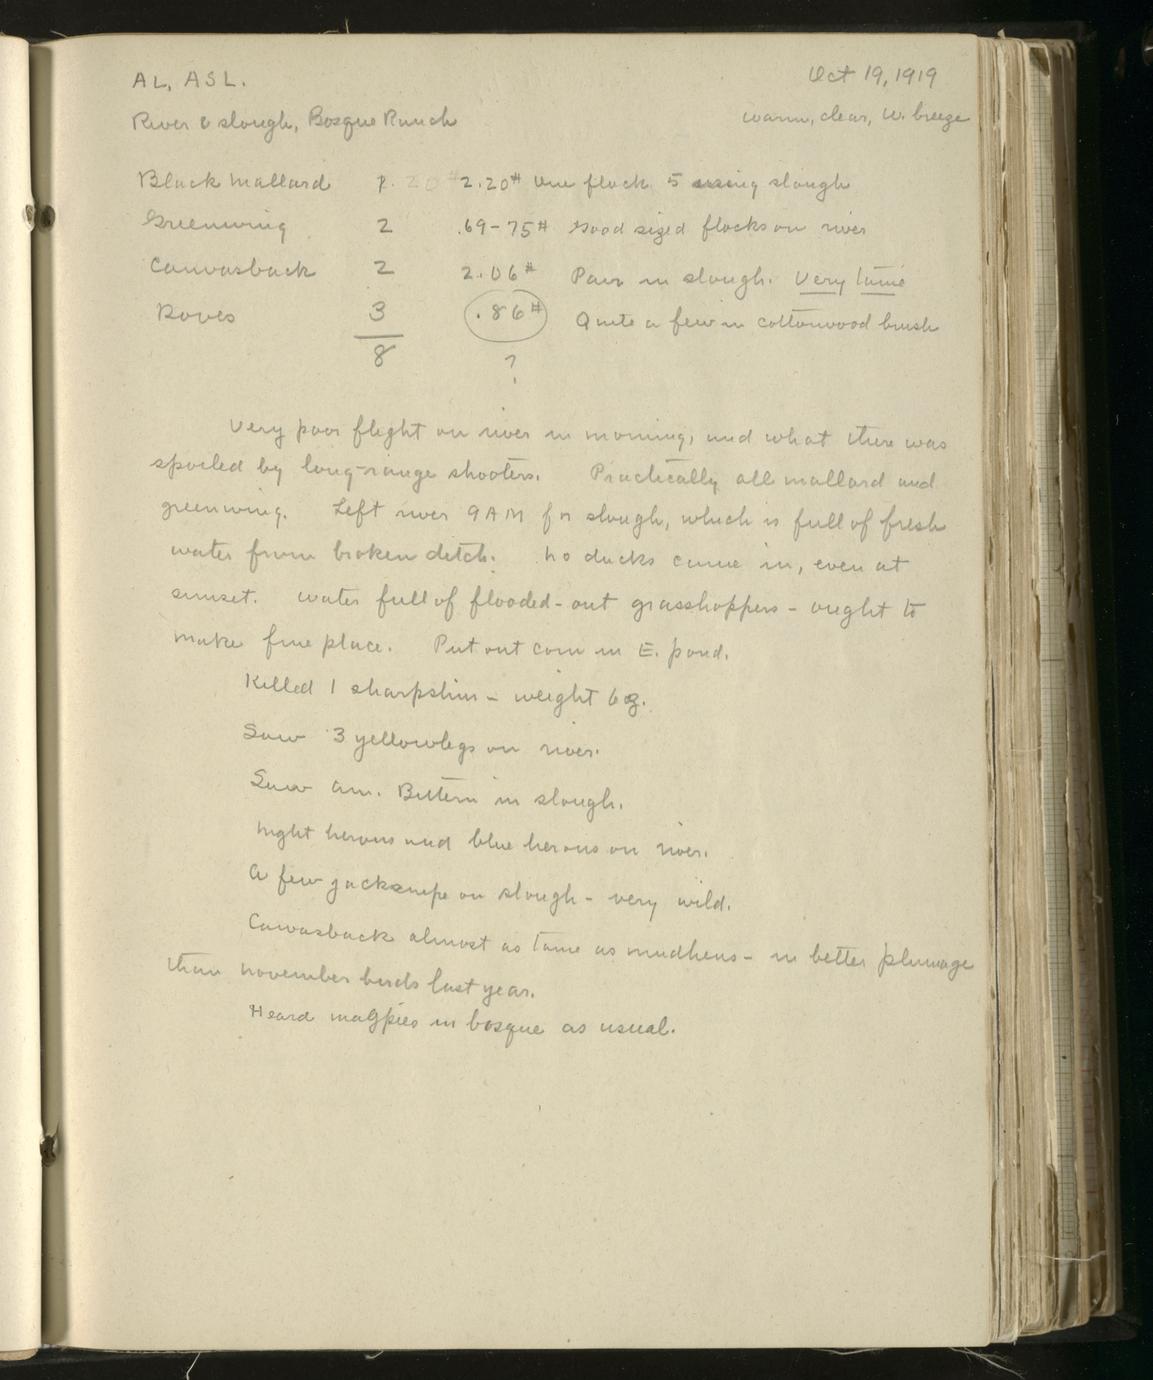 AL, ASL. Oct 19, 1919
River & slough, Bosque Ranch warm, clear, W. breeze
Black Mallard 1. 20# 2.20# One flock 5 using slough
Greenwing 2 .69-75# Good sized flocks on river
Canvasback 2 2.06# Pair in slough. Very tame
Doves 3 .86# Quite a few in cottonwood brush
8 ?
Very poor flight on river in morning, and what there was
spoiled by long-range shooters. Practically all mallard and
greenwing. Left river 9 AM for slough, which is full of fresh
water from broken ditch. No ducks came in, even at
sunset. Water full of flooded-out grasshoppers - ought to
make fine place. Put out corn in E. pond.
Killed 1 sharpshin - weight 6 oz.
Saw 3 yellowlegs on river.
Saw Am. Bittern in slough.
Night herons and blue herons on river.
A few jacksnipe on slough - very wild.
Canvasback almost as tame as mudhens - in better plumage
than November birds last year.
Heard magpies in bosque as usual.